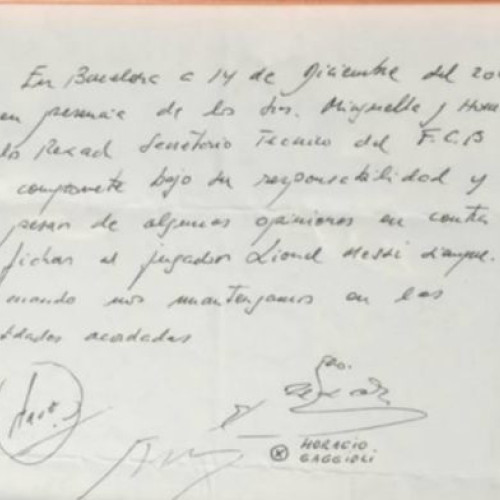 En Barcelona a 14 de Diciembre del 20
en presencia de los Srs. Minguella y Hora
los Rexach Secretario Tecnico del F.C.B
compromete bajo su responsabilidad y
pesar de algunas opiniones en contra
fichar al jugador Lionel Messi siempre
cuando nos mantengamos en las
tidades acordadas
HORACIO
GAGGIOLI